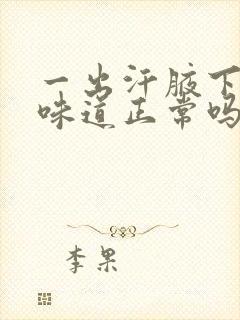 一出汗腋下
味道正常吗
李果